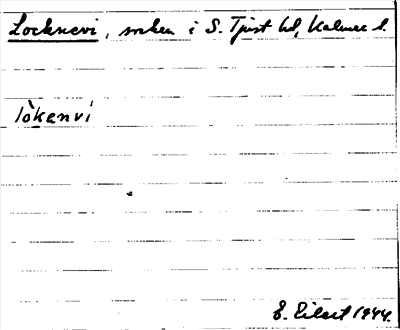 Locknevi, socken i S. Tjust hd, Kalmar l.
lòkenvi
E. Eilert 1944.